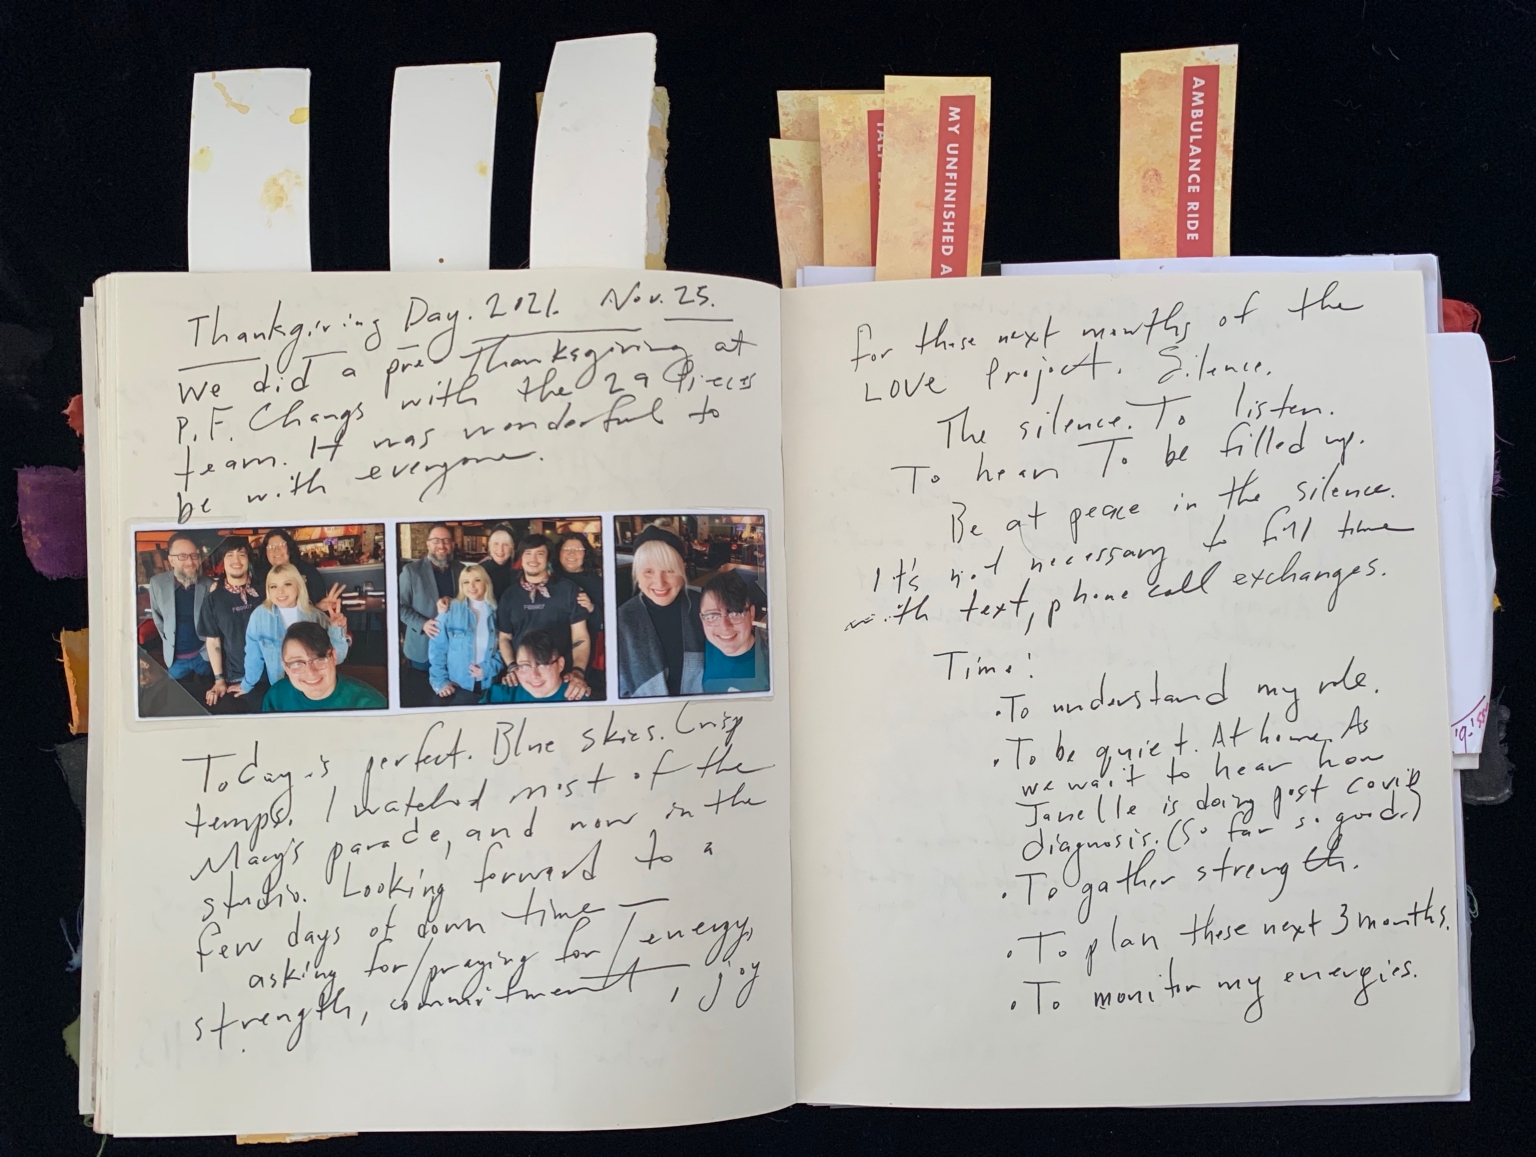 MY UNFINISHED A
AMBULANCE RIDE
Thankgiving Day. 2021. Nov. 25.
We did a pre Thanksgiving at
P.F. Changs with the 29 Pieces
team. It was wonderful to
be with everyone.
Today is perfect. Blue skies. Crisp
temps. I watched most of the
Macy's parade, and now in the
studio. Looking forward to a
few days of down time —
asking for/praying for/energy,
strength, commitment, joy
for these next months of the
LOVE Project. Silence.
The silence. To listen.
To hear To be filled up.
Be at peace in the silence.
It's not necessary to fill time
with text, phone call exchanges.
Time:
• To understand my role.
• To be quiet. At home. As
we wait to hear how
Janelle is doing post covid
diagnosis. (So far so good.)
• To gather strength.
• To plan these next 3 months.
• To monitor my energies.